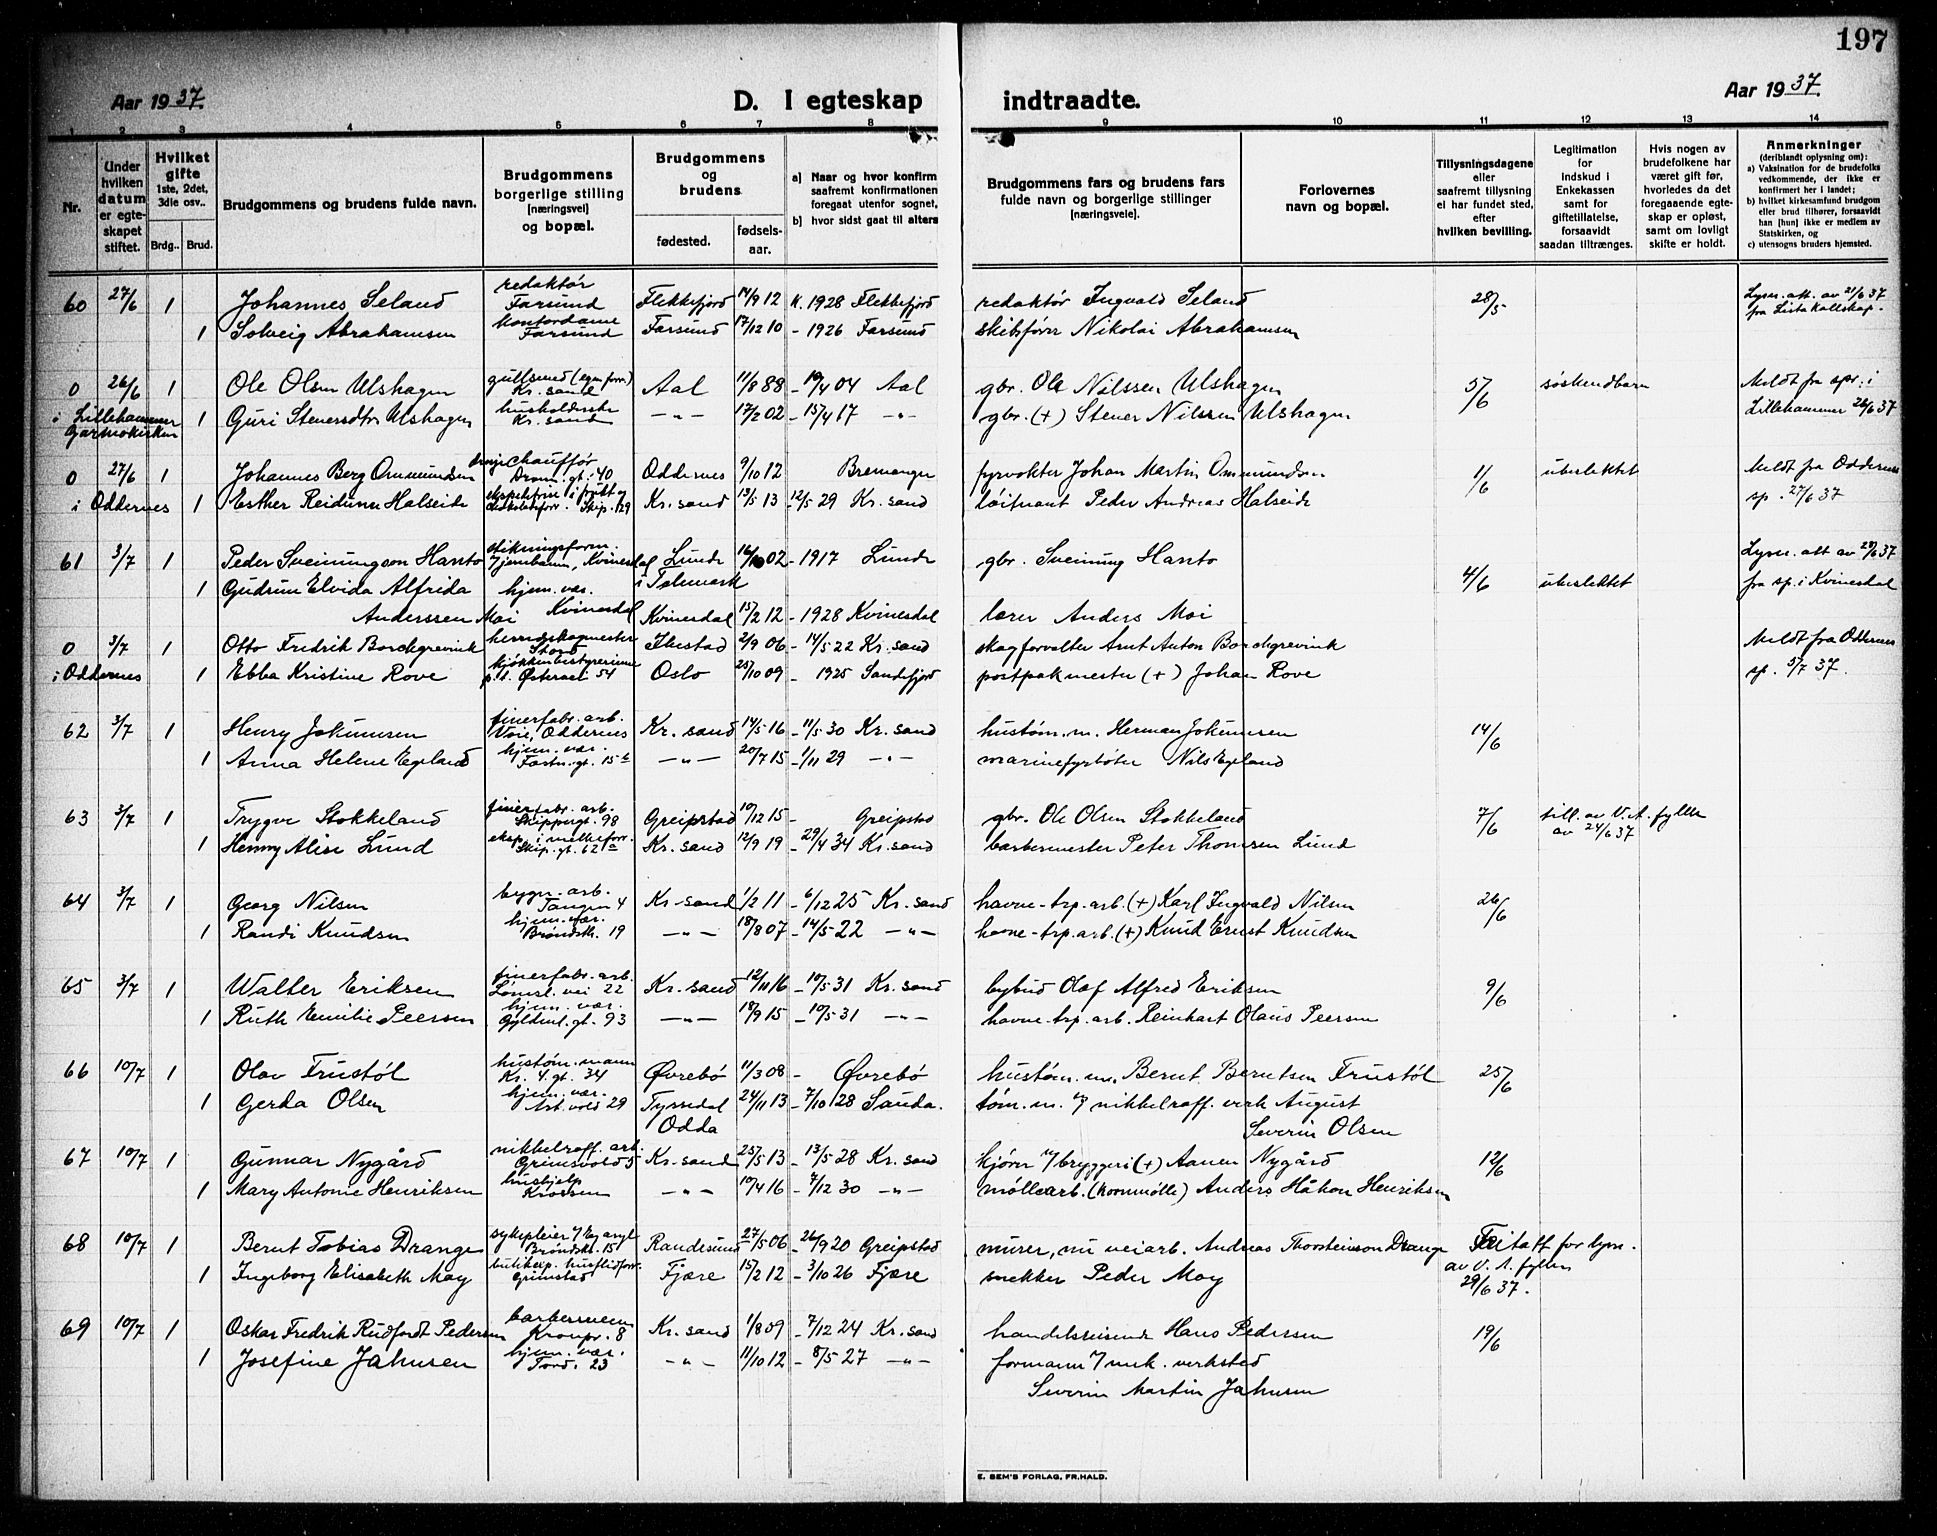 197
Aar 1937.
D. I egteskap indtraadte.
Aar 1937.
1 2 3 4 5 6 7 8 9 10 11 12 13 14
Nr.
Under hvilken datum er egteskapet stiftet.
Hvilket gifte 1ste, 2det, 3die osv..
Brdg.. Brud.
Brudgommens og brudens fulde navn.
Brudgommens borgerlige stilling [næringsvei] og bopæl.
Brudgommens og brudens
fødested. fødselsaar.
a) Naar og hvor konfirm saafremt konfirmationen foregaat utenfor sognet,
b) hvor sidst gaat til alters
Brudgommens fars og brudens fars fulde navn og borgerlige stillinger [næringsveie].
Forlovernes navn og bopæl.
Tillysningsdagene eller saafremt tillysning ei har fundet sted, efter hvilken bevilling.
Legitimation for indskud i Enkekassen samt for giftetillatelse, forsaavidt saadan tiltrænges.
Hvis nogen av brudefolkene har været gift før, hvorledes da det foregaaende egteskap er opløst, samt om lovligt skifte er holdt.
Anmerkninger
(deriblandt oplysning om):
a) Vaksination for de brudefolks vedkommende, der ikke er konfirmert her i landet;
b) hvilket kirkesamfund brudgom eller brud tilhører, forsaavidt han [hun] ikke er medlem av Statskirken, og
c) utensogns bruders hjemsted.
60 27/6 1 Johannes Seland redaktør Farsund Flekkefjord 14/9 12 K. 1928 Flekkefjord redaktør Ingvald Seland 28/5 Lysn. att. av 21/6 37
1 Solveig Abrahamsen kontordame Farsund Farsund 17/12 10 - 1926 Farsund skibsfører Nikolai Abrahamsen fra Lista kallskap.
0 26/6 1 Ole Olsen Ulshagen gullsmed (egen forr.) Kr.sand Aal 11/8 88 - 19/4 04 Aal gbr. Ole Nilssen Ulshagen 5/6 søskendbarn Meldt fra spr. i
i Lillehammer Garmokirken 1 Guri Stenersdtr Ulshagen husholderske Kr.sand -"- 17/2 02 - 15/4 17 -"- gbr. (+) Stener Nilssen Ulshagen Lillehammer 26/6 37
0 27/6 1 Johannes Berg Ommundsen drosjechauffør Dronn.gt. 40 Oddernes 9/10 12 Bremanger fyrvokter Johan Martin Ommundsen 1/6 ubeslektet Meldt fra Oddernes
i Oddernes 1 Esther Reidunn Halseide Skip. 129 Kr.sand 13/5 13 12/5 29 Kr.sand løitnant Peder Andreas Halseide sp. 27/6 37
61 3/7 1 Peder Sveinungson Hanto stikningsform. v/jernbanen, Kvinesdal Lunde i Telemark 16/10 02 - 1917 Lunde gbr. Sveinung Hanto 4/6 ubeslektet Lysn. att av 28/6 37
1 Gudrun Elvida Alfrida hjem. vær. fra sp. i Kvinesdal
Anderssen Moi Kvinesdal Kvinesdal 15/2 12 - 1928 Kvinesdal lærer Anders Moi
0 3/7 1 Otto Fredrik Borchgrevink herredskogmester Stord Ibestad 2/9 06 - 14/5 22 Kr.sand skogforvalter Arnt Anton Borchgrevink Meldt fra Oddernes
i Oddernes 1 Ebba Kristine Rove kjøkkenbestyrerinne p.t. Østerael. 54 Oslo 25/10 09 - 1925 Sandefjord postpakmester (+) Johan Rove sp. 3/7 37.
62 3/7 1 Henry Jokumsen finerfabr. arb. Voie, Oddernes Kr.sand 14/5 16 - 11/5 30 Kr.sand hustøm.m. Herman Jokumsen 14/6
1 Anna Helene Egeland hjem. vær. Festn.gt. 15 b -"- 20/7 15 - 1/11 29 -"- marinefyrbøter Nils Egeland
63 3/7 1 Trygve Stokkeland finerfabr. arb. Skippergt. 98 Greipstad 10/12 15 - Greipstad gbr. Ole Olsen Stokkeland 7/6 till. av V.A. fylke
1 Henny Alise Lund eksp. i melkeforr. Skip.gt. 62 a Kr.sand 12/9 19 - 29/4 34 Kr.sand barbermester Peter Thomsen Lund av 24/6 37
64 3/7 1 Georg Nilsen bygn. arb. Tangen 4 Kr.sand 1/2 11 - 6/12 25 Kr.sand havne-trp.arb. (+) Karl Ingvald Nilsen 26/6
1 Randi Knudsen hjem. vær. Brøndstk. 19 -"- 18/8 07 - 14/5 22 -"- havne-trp.arb. (+) Knud Ernst Knudsen
65 3/7 1 Walter Eriksen finerfabr. arb. Lømsl. vei 22 Kr.sand 12/11 16 - 10/5 31 Kr.sand bybud Olaf Alfred Eriksen 9/6
1 Ruth Emilie Peersen hjem. vær. Gyldenl.gt. 93 -"- 18/9 15 - 10/5 31 -"- havne-trp.arb. Reinhart Olaus Peersen
66 10/7 1 Olav Frustøl hustøm.mann Kr. 4.gt. 34 Øvrebø 11/3 08 - Øvrebø hustøm.m. Bernt Berntsen Frustøl 25/6
1 Gerda Olsen hjem. vær. Art.vold 29 Tyssedal Odda 24/11 13 - 7/10 28 Sauda. tøm.m. v/ nikkelraff.verk August
Severin Olsen
67 10/7 1 Gunnar Nygård nikkelraff. arb. Grimsvold 5 Kr.sand 25/5 13 - 13/5 28 Kr.sand kjører v/bryggeri (+) Aanen Nygård 12/6
1 Mary Antonie Henriksen hushjelp Krossen -"- 10/4 16 - 7/12 30 -"- møllearb. (kornmølle) Anders Håkon Henriksen
68 10/7 1 Bernt Tobias Drange sykepleier v/Eg asyl Brøndstk. 15 Randesund 27/5 06 - 26/9 20 Greipstad murer, nu veiarb. Andreas Thorsteinson Drange Fritatt for lysn.
1 Ingeborg Elisabeth Moy butikeksp. husflidforr. Grimstad Fjære 15/2 12 - 3/10 26 Fjære snekker Peder Moy av V. A. fylke
29/6 37.
69 10/7 1 Oskar Fredrik Rudfordt Pedersen barbersvenn Kronpr. 8 Kr.sand 1/8 09 - 7/12 24 Kr.sand handelsreisende Hans Pedersen 19/6
1 Josefine Jahnsen hjem. vær. Tord. 23 -"- 11/10 12 - 8/5 27 -"- formann v/mek. verksted
Severin Martin Jahnsen
E. SEM'S FORLAG, FR.HALD.